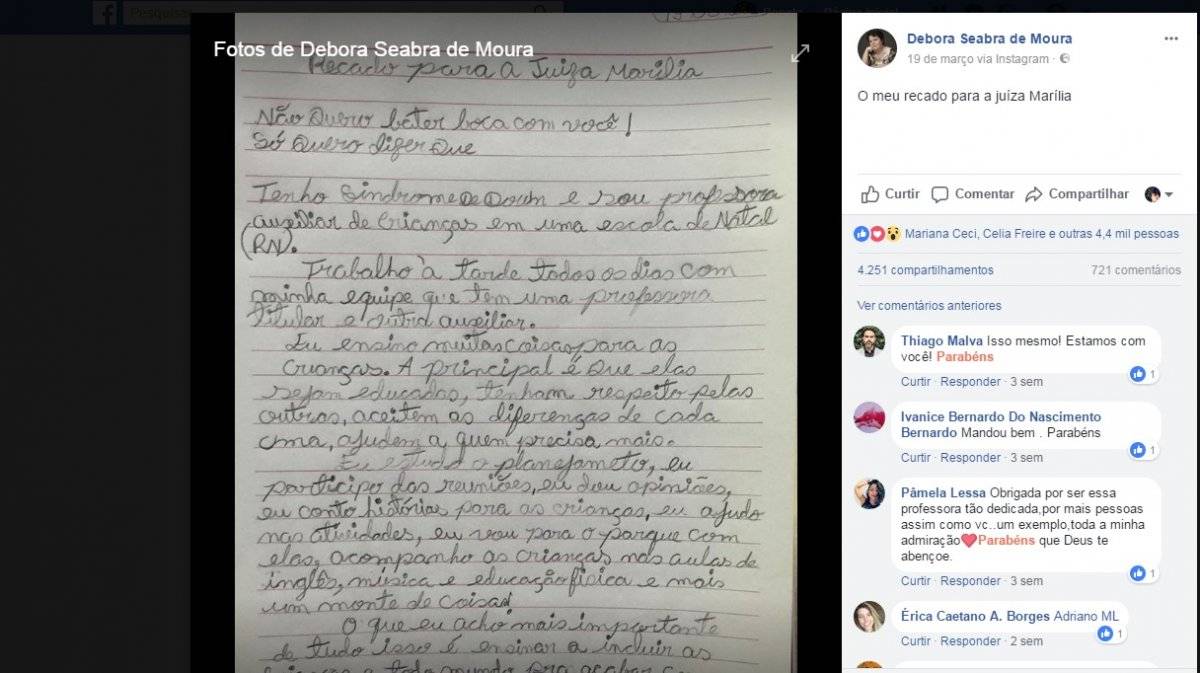 Pesquisar
Fotos de Debora Seabra de Moura
Recado para a Juíza Marília
Não Quero bater boca com você!
Só Quero dizer Que
Tenho Síndrome De Down e sou professora
auxiliar de Crianças em uma escola de Natal
(RN).
Trabalho à tarde todos os dias com
minha equipe que tem uma professora
titular e outra auxiliar.
Eu ensino muitas coisas para as
crianças. A principal é Que elas
sejam educadas, tenham respeito pelas
outras, aceitem as diferenças de cada
uma, ajudem a quem precisa mais.
Eu estudo o planejameto, eu
participo das reuniões, eu dou opiniões,
eu conto histórias para as crianças, eu ajudo
nas atividades, eu vou para o parque com
elas, acompanho as crianças nas aulas de
inglês, música e educação física e mais
um monte de coisas!
O que eu acho mais importante
de tudo isso é ensinar a incluir as
crianças e todo mundo pra acabar
Debora Seabra de Moura
19 de março via Instagram ·
O meu recado para a juíza Marília
Curtir Comentar Compartilhar
Mariana Ceci, Celia Freire e outras 4,4 mil pessoas
4.251 compartilhamentos 721 comentários
Ver comentários anteriores
Thiago Malva Isso mesmo! Estamos com
você! Parabéns
1
Curtir · Responder · 3 sem
Ivanice Bernardo Do Nascimento
Bernardo Mandou bem . Parabéns
1
Curtir · Responder · 3 sem
Pâmela Lessa Obrigada por ser essa
professora tão dedicada,por mais pessoas
assim como vc..um exemplo,toda a minha
admiração❤Parabéns que Deus te
abençoe.
1
Curtir · Responder · 3 sem
Érica Caetano A. Borges Adriano ML
1
Curtir · Responder · 2 sem